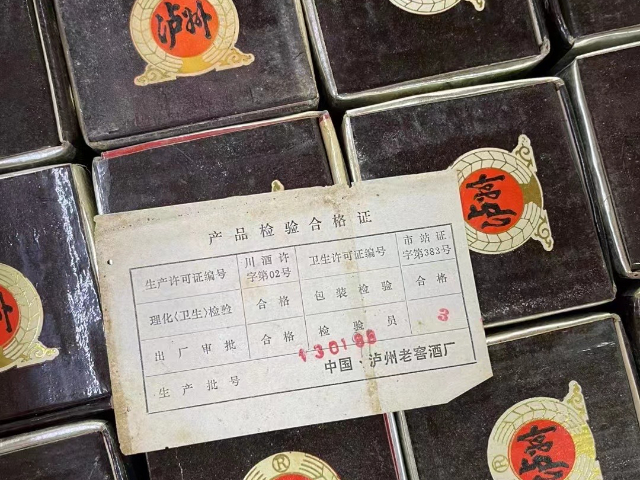 泸州
产品检验合格证
生产许可证编号 川酒许字第02号 卫生许可证编号 市站证字第383号
理化(卫生)检验 合格 包装检验 合格
出厂审批 合格 检验员 3
生产批号 130188
中国·泸州老窖酒厂
®